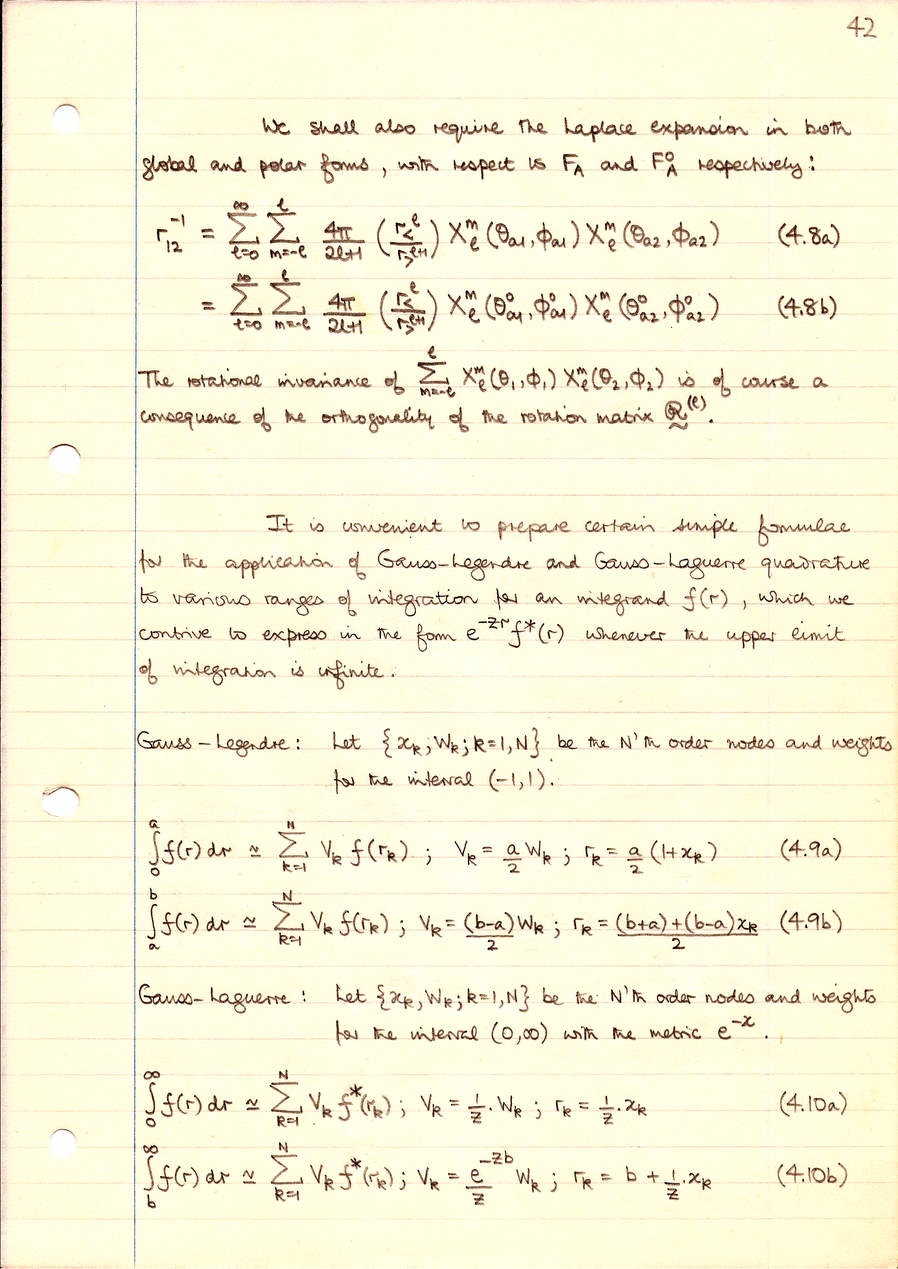 42
We shall also require the Laplace expansion in both
global and polar forms, with respect to F_A and F_A^o respectively:
r_12^{-1} = ∑_{l=0}^{∞} ∑_{m=-l}^{l} 4π/(2l+1) (r_<^l / r_>^{l+1}) X_l^m(θ_a1, ϕ_a1) X_l^m(θ_a2, ϕ_a2) (4.8a)
= ∑_{l=0}^{∞} ∑_{m=-l}^{l} 4π/(2l+1) (r_<^l / r_>^{l+1}) X_l^m(θ_a1^o, ϕ_a1^o) X_l^m(θ_a2^o, ϕ_a2^o) (4.8b)
The rotational invariance of ∑_{m=-l}^{l} X_l^m(θ_1, ϕ_1) X_l^m(θ_2, ϕ_2) is of course a
consequence of the orthogonality of the rotation matrix R^{(l)}.
It is convenient to prepare certain simple formulae
for the application of Gauss-Legendre and Gauss-Laguerre quadrature
to various ranges of integration for an integrand f(r), which we
contrive to express in the form e^{-zr} f*(r) whenever the upper limit
of integration is infinite.
Gauss-Legendre: Let {x_k, W_k; k=1, N} be the N'th order nodes and weights
for the interval (-1, 1).
∫_0^a f(r) dr ≃ ∑_{k=1}^{N} V_k f(r_k) ; V_k = a/2 W_k ; r_k = a/2 (1+x_k) (4.9a)
∫_a^b f(r) dr ≃ ∑_{k=1}^{N} V_k f(r_k) ; V_k = (b-a)/2 W_k ; r_k = ((b+a)+(b-a)x_k)/2 (4.9b)
Gauss-Laguerre: Let {x_k, W_k; k=1, N} be the N'th order nodes and weights
for the interval (0, ∞) with the metric e^{-x}.
∫_0^∞ f(r) dr ≃ ∑_{k=1}^{N} V_k f*(r_k) ; V_k = 1/z . W_k ; r_k = 1/z . x_k (4.10a)
∫_b^∞ f(r) dr ≃ ∑_{k=1}^{N} V_k f*(r_k) ; V_k = e^{-zb}/z W_k ; r_k = b + 1/z . x_k (4.10b)